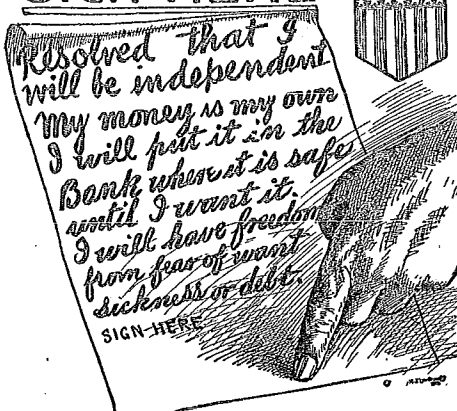 Resolved that I
will be independent
My money is my own
I will put it in the
Bank where it is safe
until I want it.
I will have freedom
from fear of want
sickness or debt.
SIGN HERE